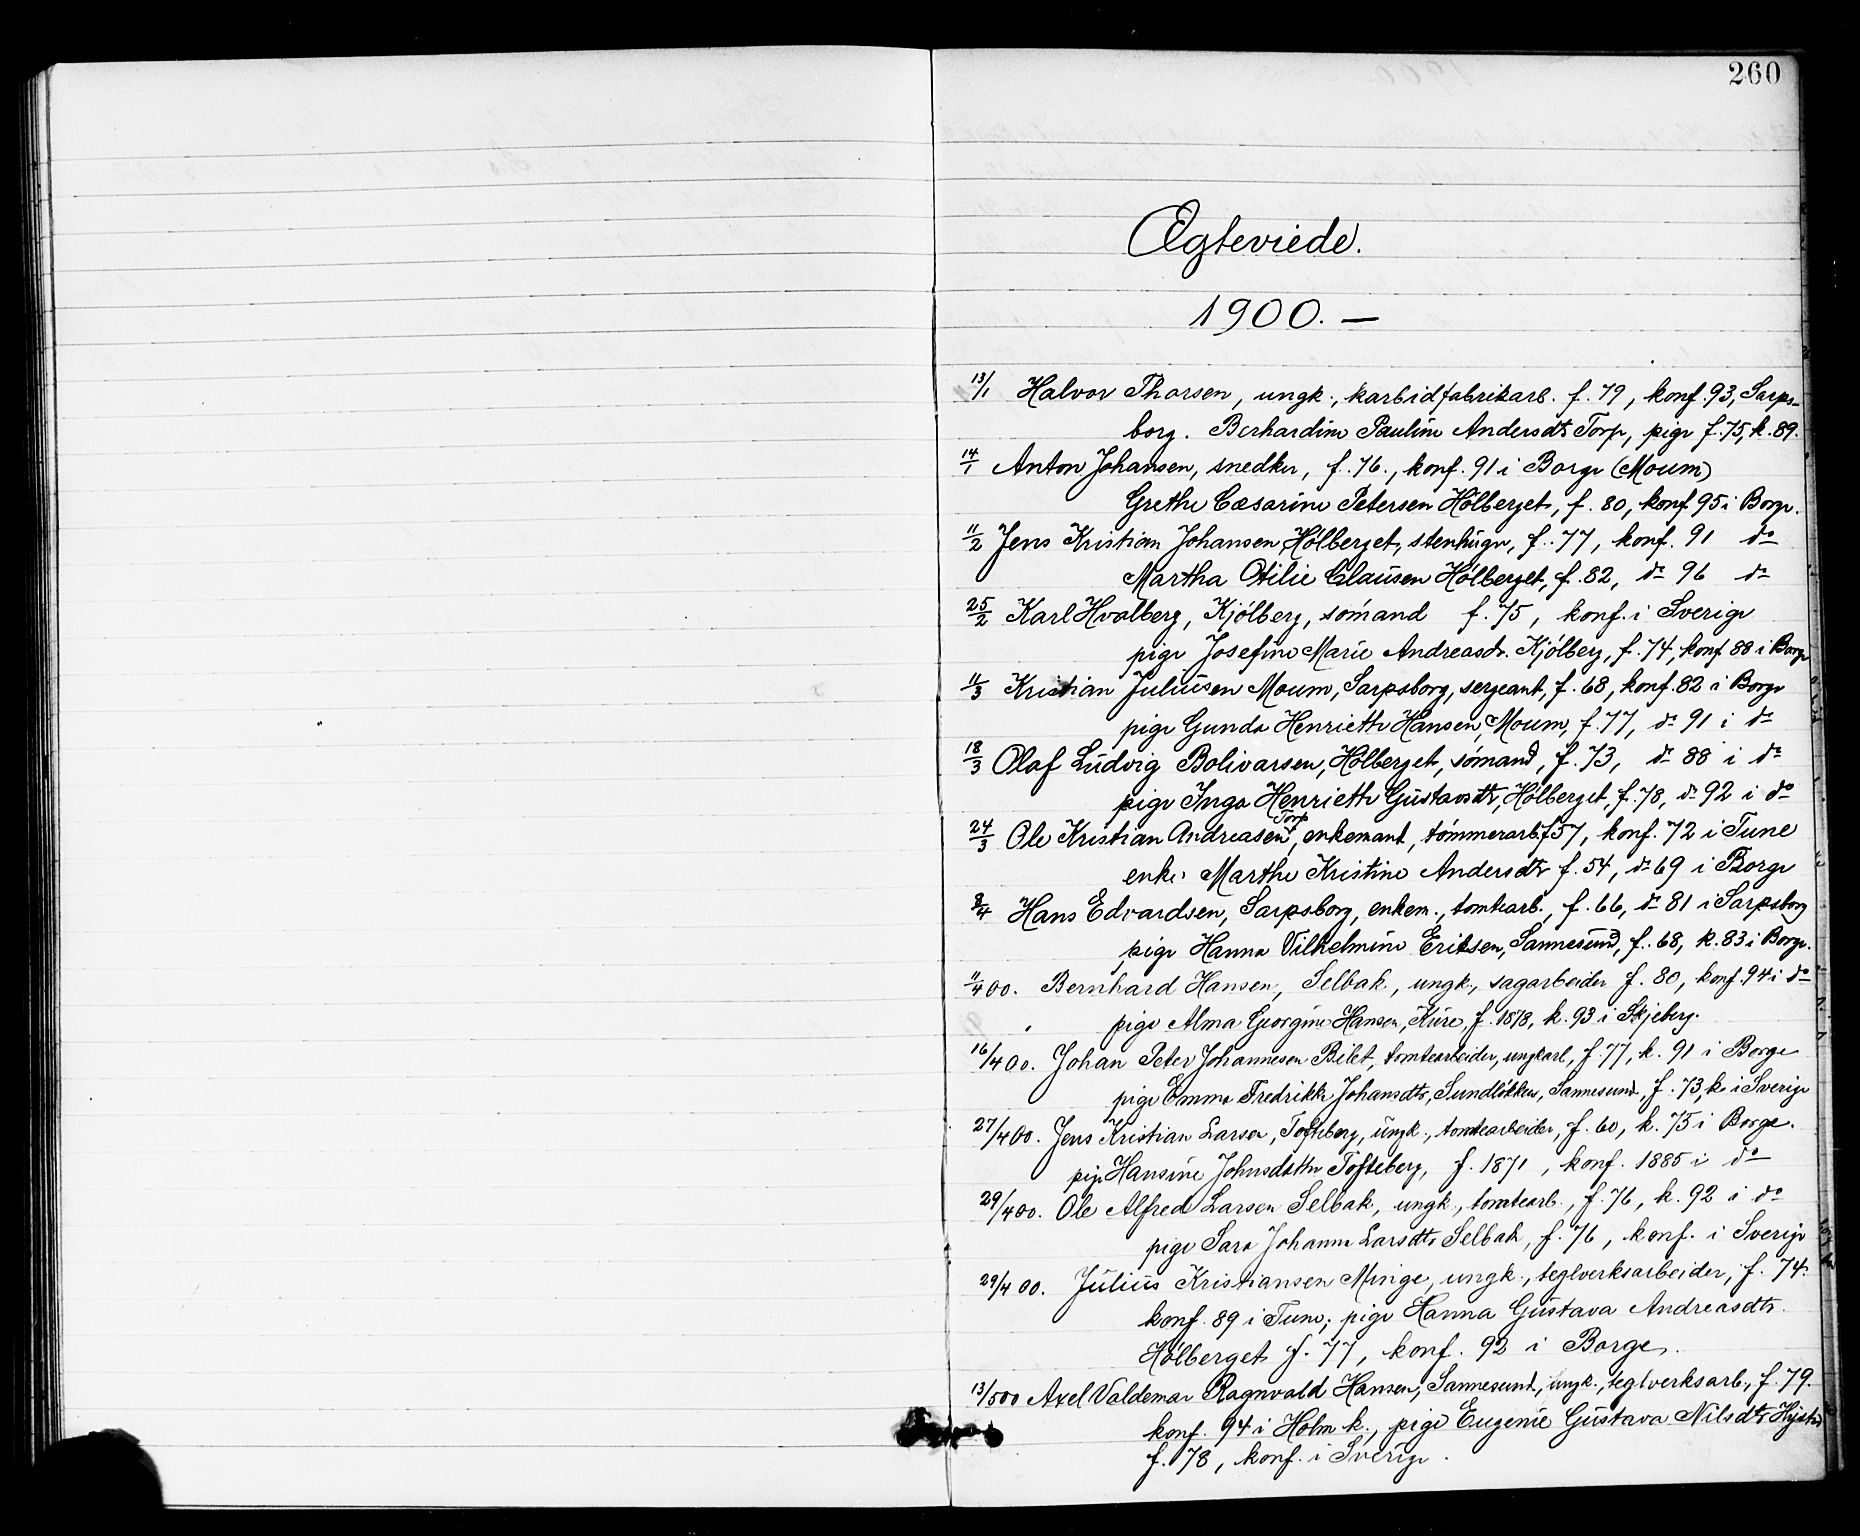 260
Ægteviede.
1900. —
13/1 Halvor Thorsen, ungk., karbidfabrikarb. f. 79, konf. 93, Sarps-
borg. Berhardine Pauline Andersdtr Torp, pige f. 75, k. 89.
14/1 Anton Johansen, snedker, f. 76., konf. 91 i Borge (Moum)
Grethe Cæsarine Petersen Hólberget, f. 80, konf 95 i Borge.
11/2 Jens Kristian Johansen, Hólberget, stenhúger, f. 77, konf. 91 do
Martha Otilie Claúsen Hólberget, f. 82, do 96 do
25/2 Karl Hvalberg, Kjólberg, sómand f. 75, konf. i Sverige
pige Josefine Marie Andreasdr. Kjólberg, f. 74, konf 88 i Borge
11/3 Kristian Juliúsen Moum, Sarpsborg, sergeant, f. 68, konf. 82 i Borge
pige Gunda Henriette Hansen, Moum, f. 77, do 91 i do
18/3 Olaf Lúdvig Bolivarsen, Hólberget, sómand, f. 73, do 88 i do
pige Inga Henriette Gústavsdtr, Hólberget, f. 78, do 92 i do
24/3 Ole Kristian Andreasen, Torp, enkemant, tómmerarb. f 57, konf. 72 i Tune
enke Marthe Kristine Andersdtr f. 54, do 69 i Borge
8/4 Hans Edvardsen, Sarpsborg, enkem., tomtearb., f. 66, do 81 i Sarpsborg
pige Hanna Vilhelmine Eriksen, Sannesúnd, f. 68, k. 83 i Borge.
11/4 00. Bernhard Hansen, Selbak, ungk., sagarbeider f. 80, konf. 94 i do
pige Alma Georgine Hansen, Kúre, f. 1878, k. 93 i Skjeberg.
16/4 00. Johan Peter Johannesen Bilet, tomtearbeider, ungkarl, f. 77, k. 91 i Borge
pige Emma Fredrikke Johansdtr, Sundlókken, Sannesund, f. 73, k. i Sverige
27/4 00. Jens Kristian Larsen, Tofteberg, úngk., tomtearbeider, f. 60, k. 75 i Borge.
pige Hansine Johnsdatter Tofteberg, f. 1871, konf. 1885 i do
29/4 00. Ole Alfred Larsen Selbak, ungk., tomtearb., f. 76, k. 92 i do
pige Sara Johanne Larsdtr Selbak, f. 76, konf. i Sverige
29/4 00. Júliús Kristiansen Minge, ungk., teglverksarbeider, f. 74.
konf. 89 i Tune; pige Hanna Gústava Andreasdtr.
Hólberget f. 77, konf. 92 i Borge.
13/5 00 Axel Valdemar Ragnvald Hansen, Sannesund, úngk., teglverksarb., f. 79.
konf. 94 i Holm k., pige Eugenie Gústava Nilsdtr
f. 78, konf. i Sverige.